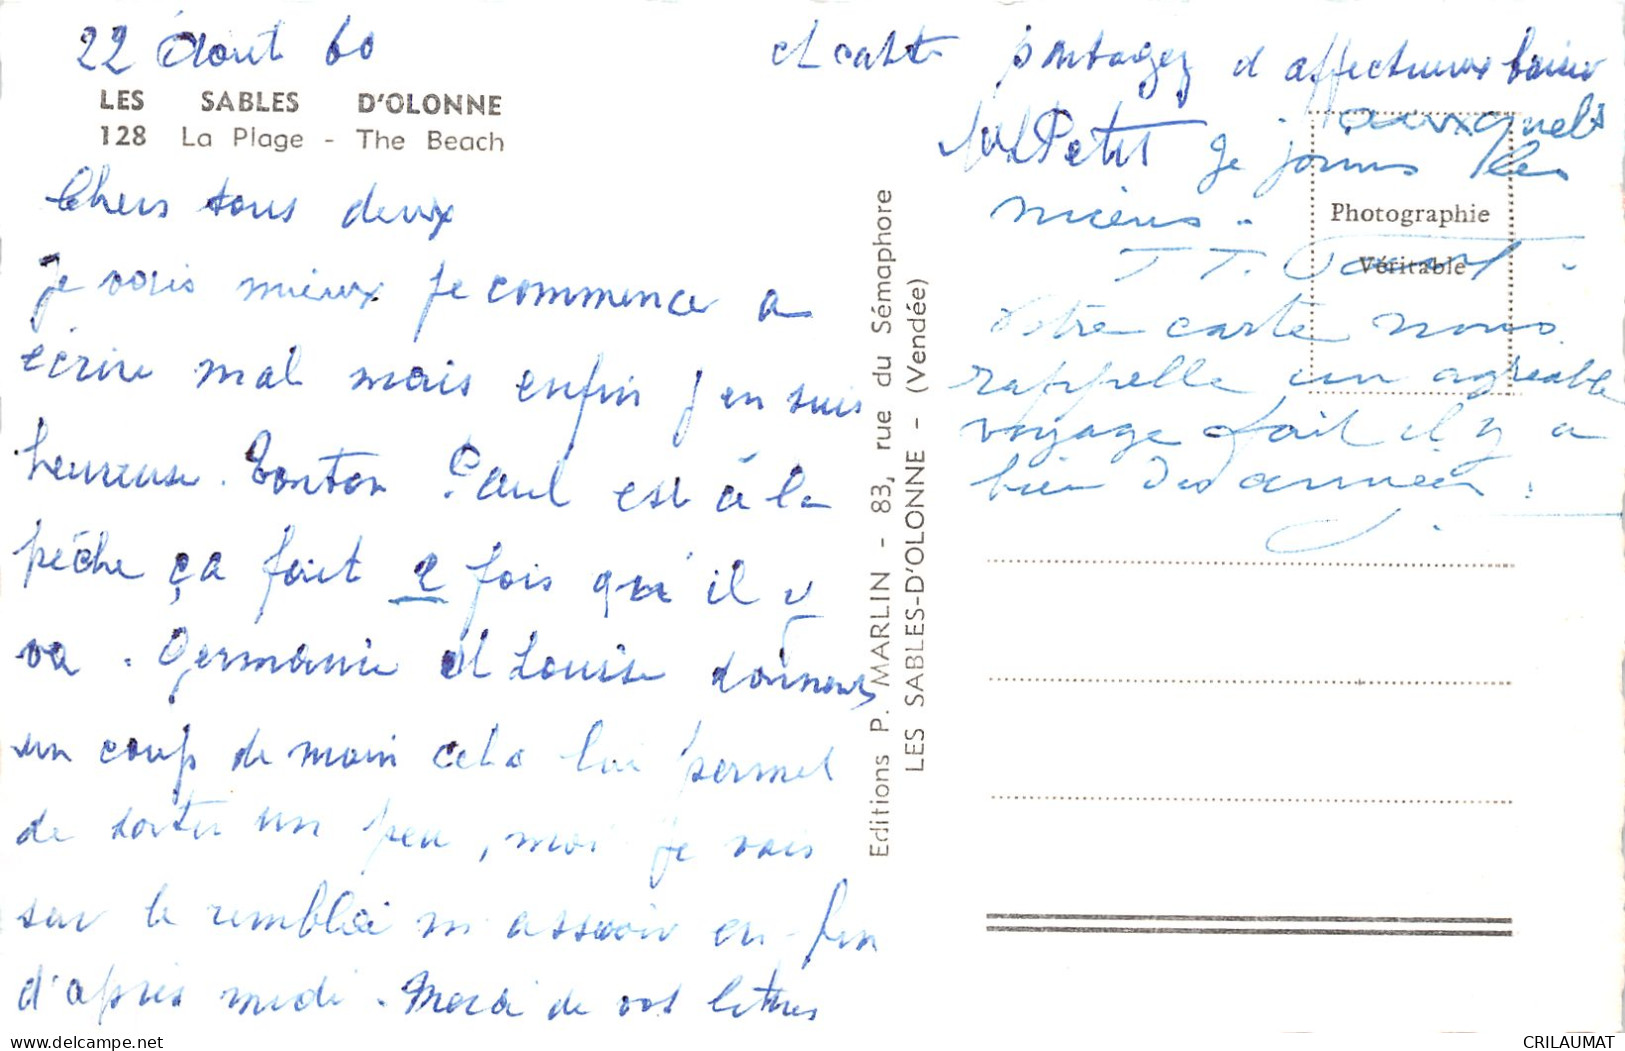 22 Août 60
LES SABLES D'OLONNE
128 La Plage - The Beach
Chers tous deux
Je vais mieux je commence a
écrire mal mais enfin j'en suis
heureuse. Tonton Paul est à la
pêche ça fait 2 fois qu'il y
va. Germaine et Louise donnent
un coup de main cela lui permet
de sortir un peu, moi je vais
sur le remblai m'assoir en fin
d'après midi. Merci de vos lettres
et cartes partagez d'affectueux baisers
Petit auxquels
Je joins les
miens.
T T.
Votre carte nous
rappelle un agréable
voyage fait il y a
bien des années.
Photographie
Véritable
Editions P. MARLIN - 83, rue du Sémaphore
LES SABLES-D'OLONNE - (Vendée)
delcampe.net
CRILAUMAT